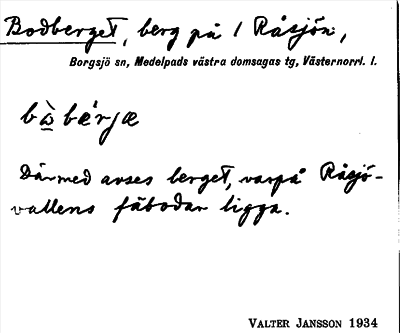 Bodberget, berg på 1 Råsjön,
Borgsjö sn, Medelpads västra domsagas tg, Västernorrl. l.
bɷ̀bæ̀rjæ
Därmed avses berget, varpå Råsjö-
vallens fäbodar ligga.
VALTER JANSSON 1934